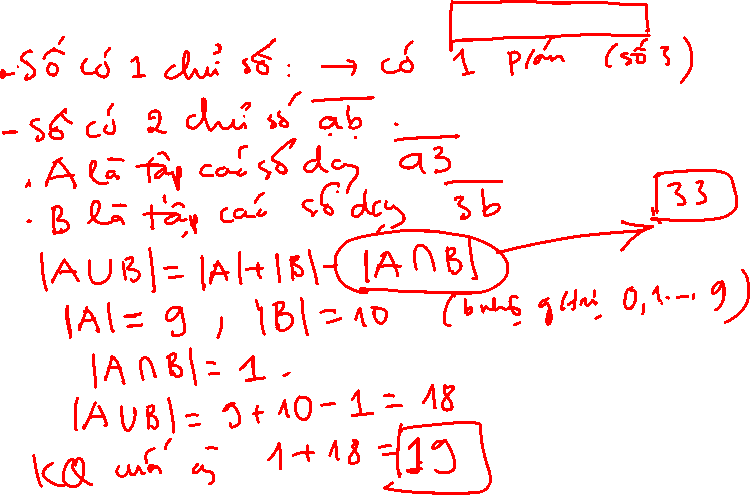 - Số có 1 chữ số: → có 1 p/án (số 3)
- Số có 2 chữ số \overline{ab}.
. A là tập các số dạng \overline{a3}
. B là tập các số dạng \overline{3b}
33
|A∪B| = |A| + |B| - |A∩B|
|A| = 9 , |B| = 10 (b nhận g/trị 0, 1..., 9)
|A∩B| = 1.
|A∪B| = 9 + 10 - 1 = 18
KQ cuối 1 + 18 = 19